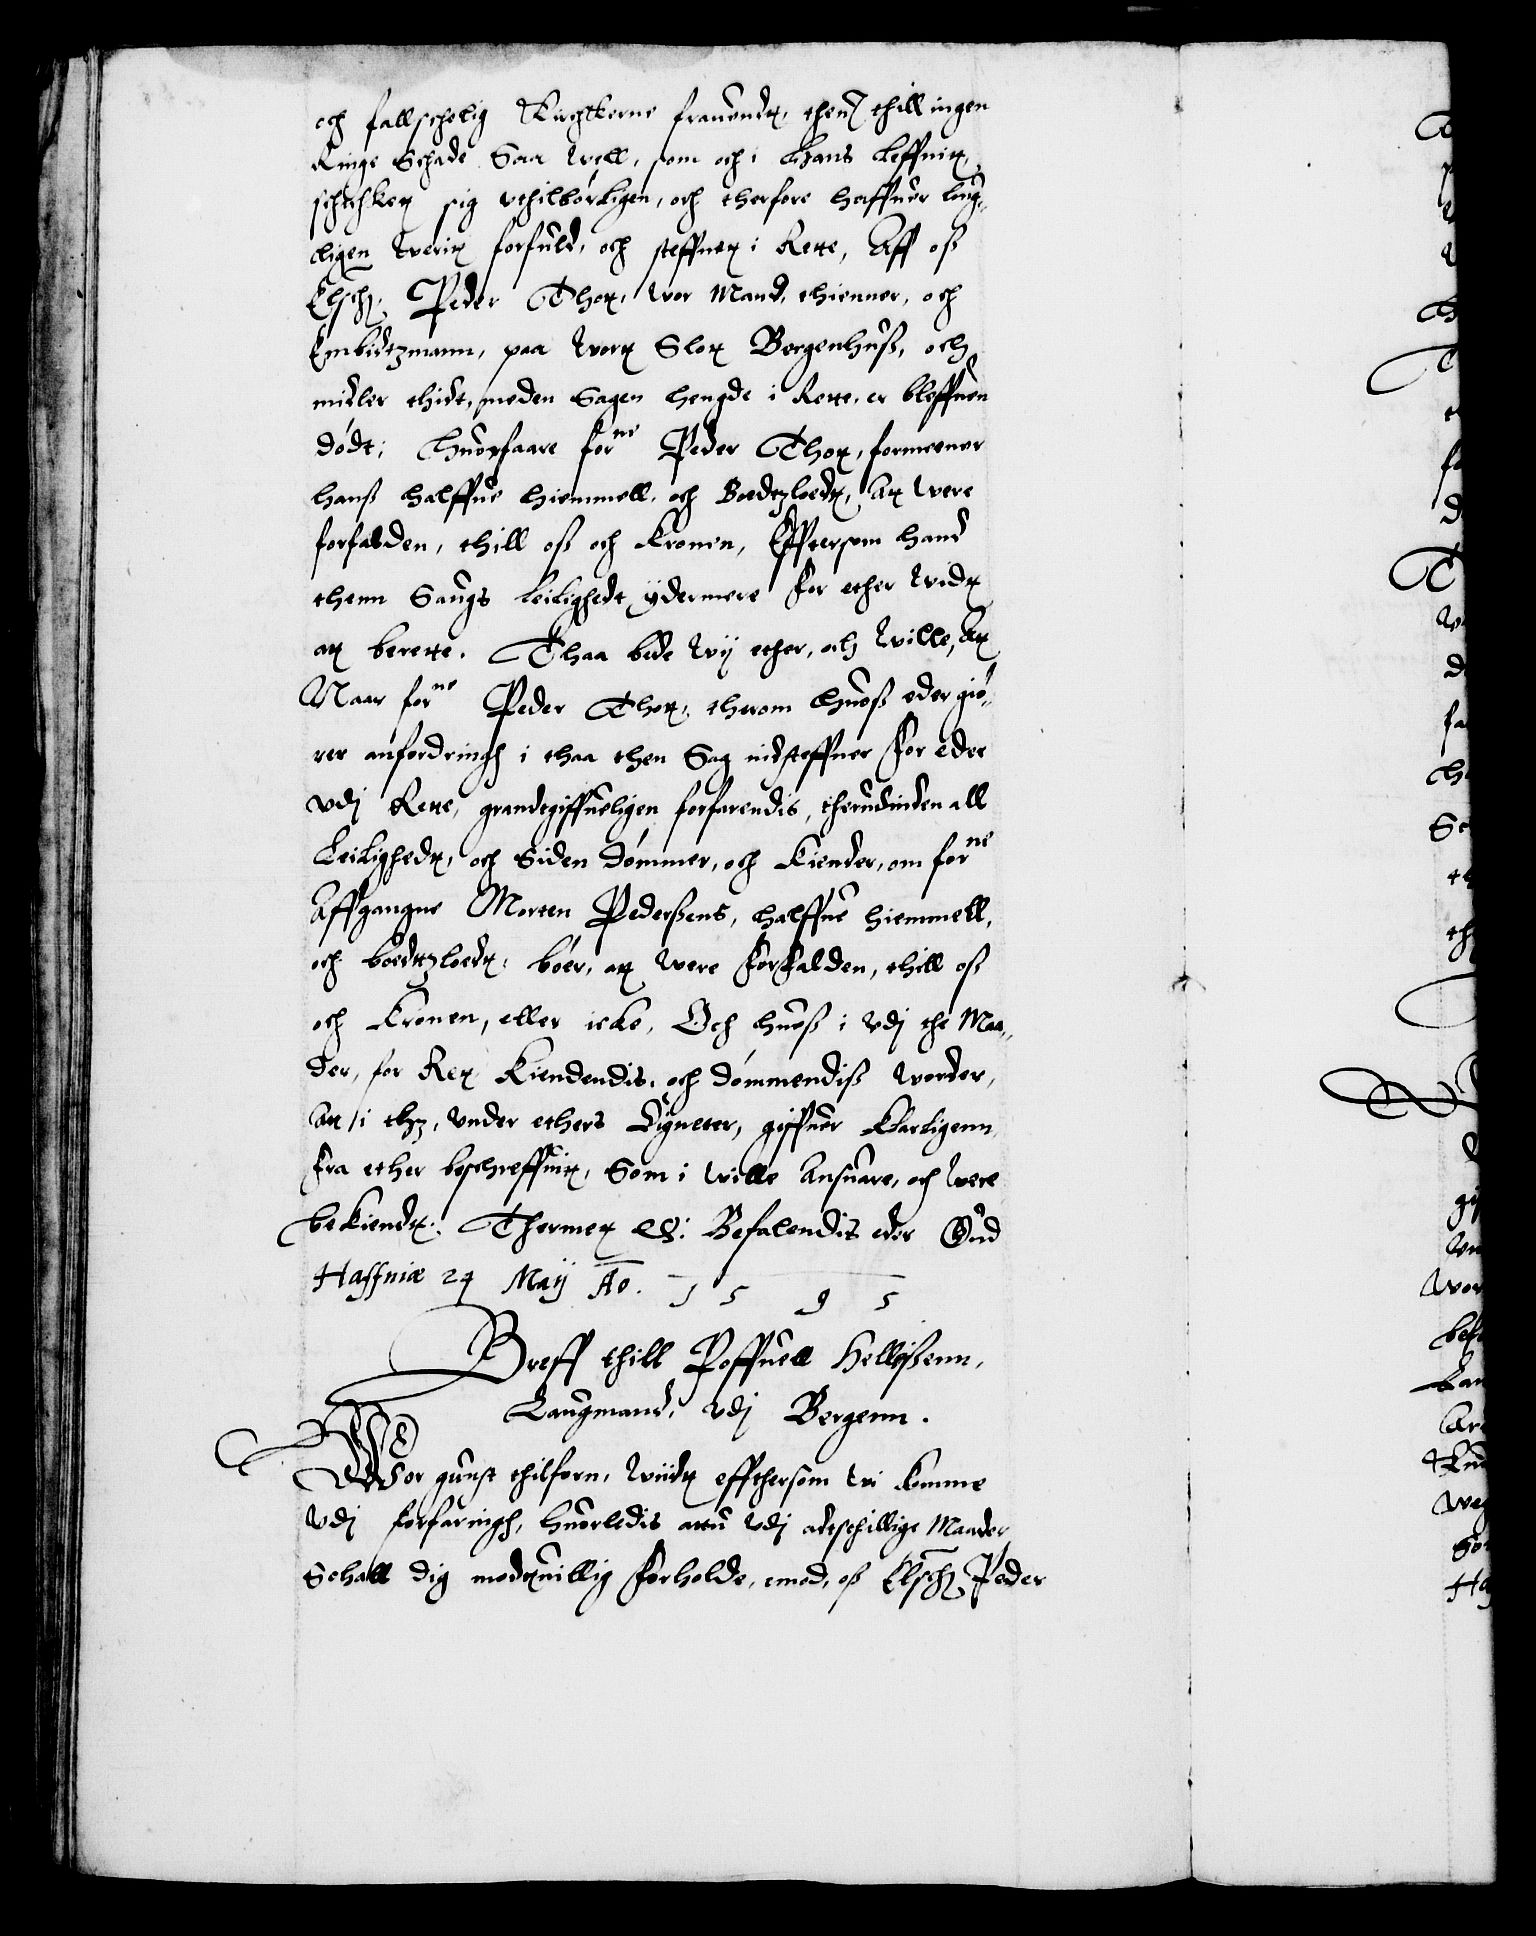 och fallschelig Kirchkerne frauendt, thenn thill ingen
Ringe Schade Saa well, som och i Hans leffnit,
schichket sig vthilbórligen, och therfore haffuer laug„
ligen werit forfuld, och steffnet i Rette, Aff oß
Elschl. Peder Thott, wor Mand, thienner, och
Embidtzmann, paa wort Slott Bergenhuß, och
midler thidt, meden Sagen hengde i Rette, er bleffuen
dódt; huorfaare forne Peder Thott, formeener
hanß halffue hiemmell, och Boedtzloedt, Att were
forfalden, thill oß och Kronen, Effttersom hand
thenn Saugs leilighedt ÿdermere for ether widt
att berette. Thaa bede Wij ether, och Wille, Att
Naar forne Peder Thott, therom huoß eder gió„
rer anfordringh i thaa then Sag indsteffner for eder
vdj Rette, grandtgiffueligen forfarendis, therudinden all
Leilighedt, och Siden Dómmer, och Kiender, om forne
Affgangne Morten Pederßens, halffue hiemmell,
och boedtzloedt, bóer, att were forfalden, thill oß
och Kronen, eller icke, Och huoß i vdj the Maa„
der, for Rett Kiendendis, och dómmendiß worder,
Att i thz, under ethers Signeter, giffuer Klarligenn
fra ether beschreffuit, Som i wille Ansuare, och were
bekiendt. Thermet &: Befalendis eder Gud
Haffniæ 24 Maij Ao. 1595
Breff thill Poffuell Hellißenn,
Laugmand, vdj Bergenn.
Wor gunst thilforn, Wiidt effthersom wi komme
vdj forfaringh, huorledis attu vdj adtschillige Maader
Schall dig modtuillig forholde, imod, oß Elschl. Peder